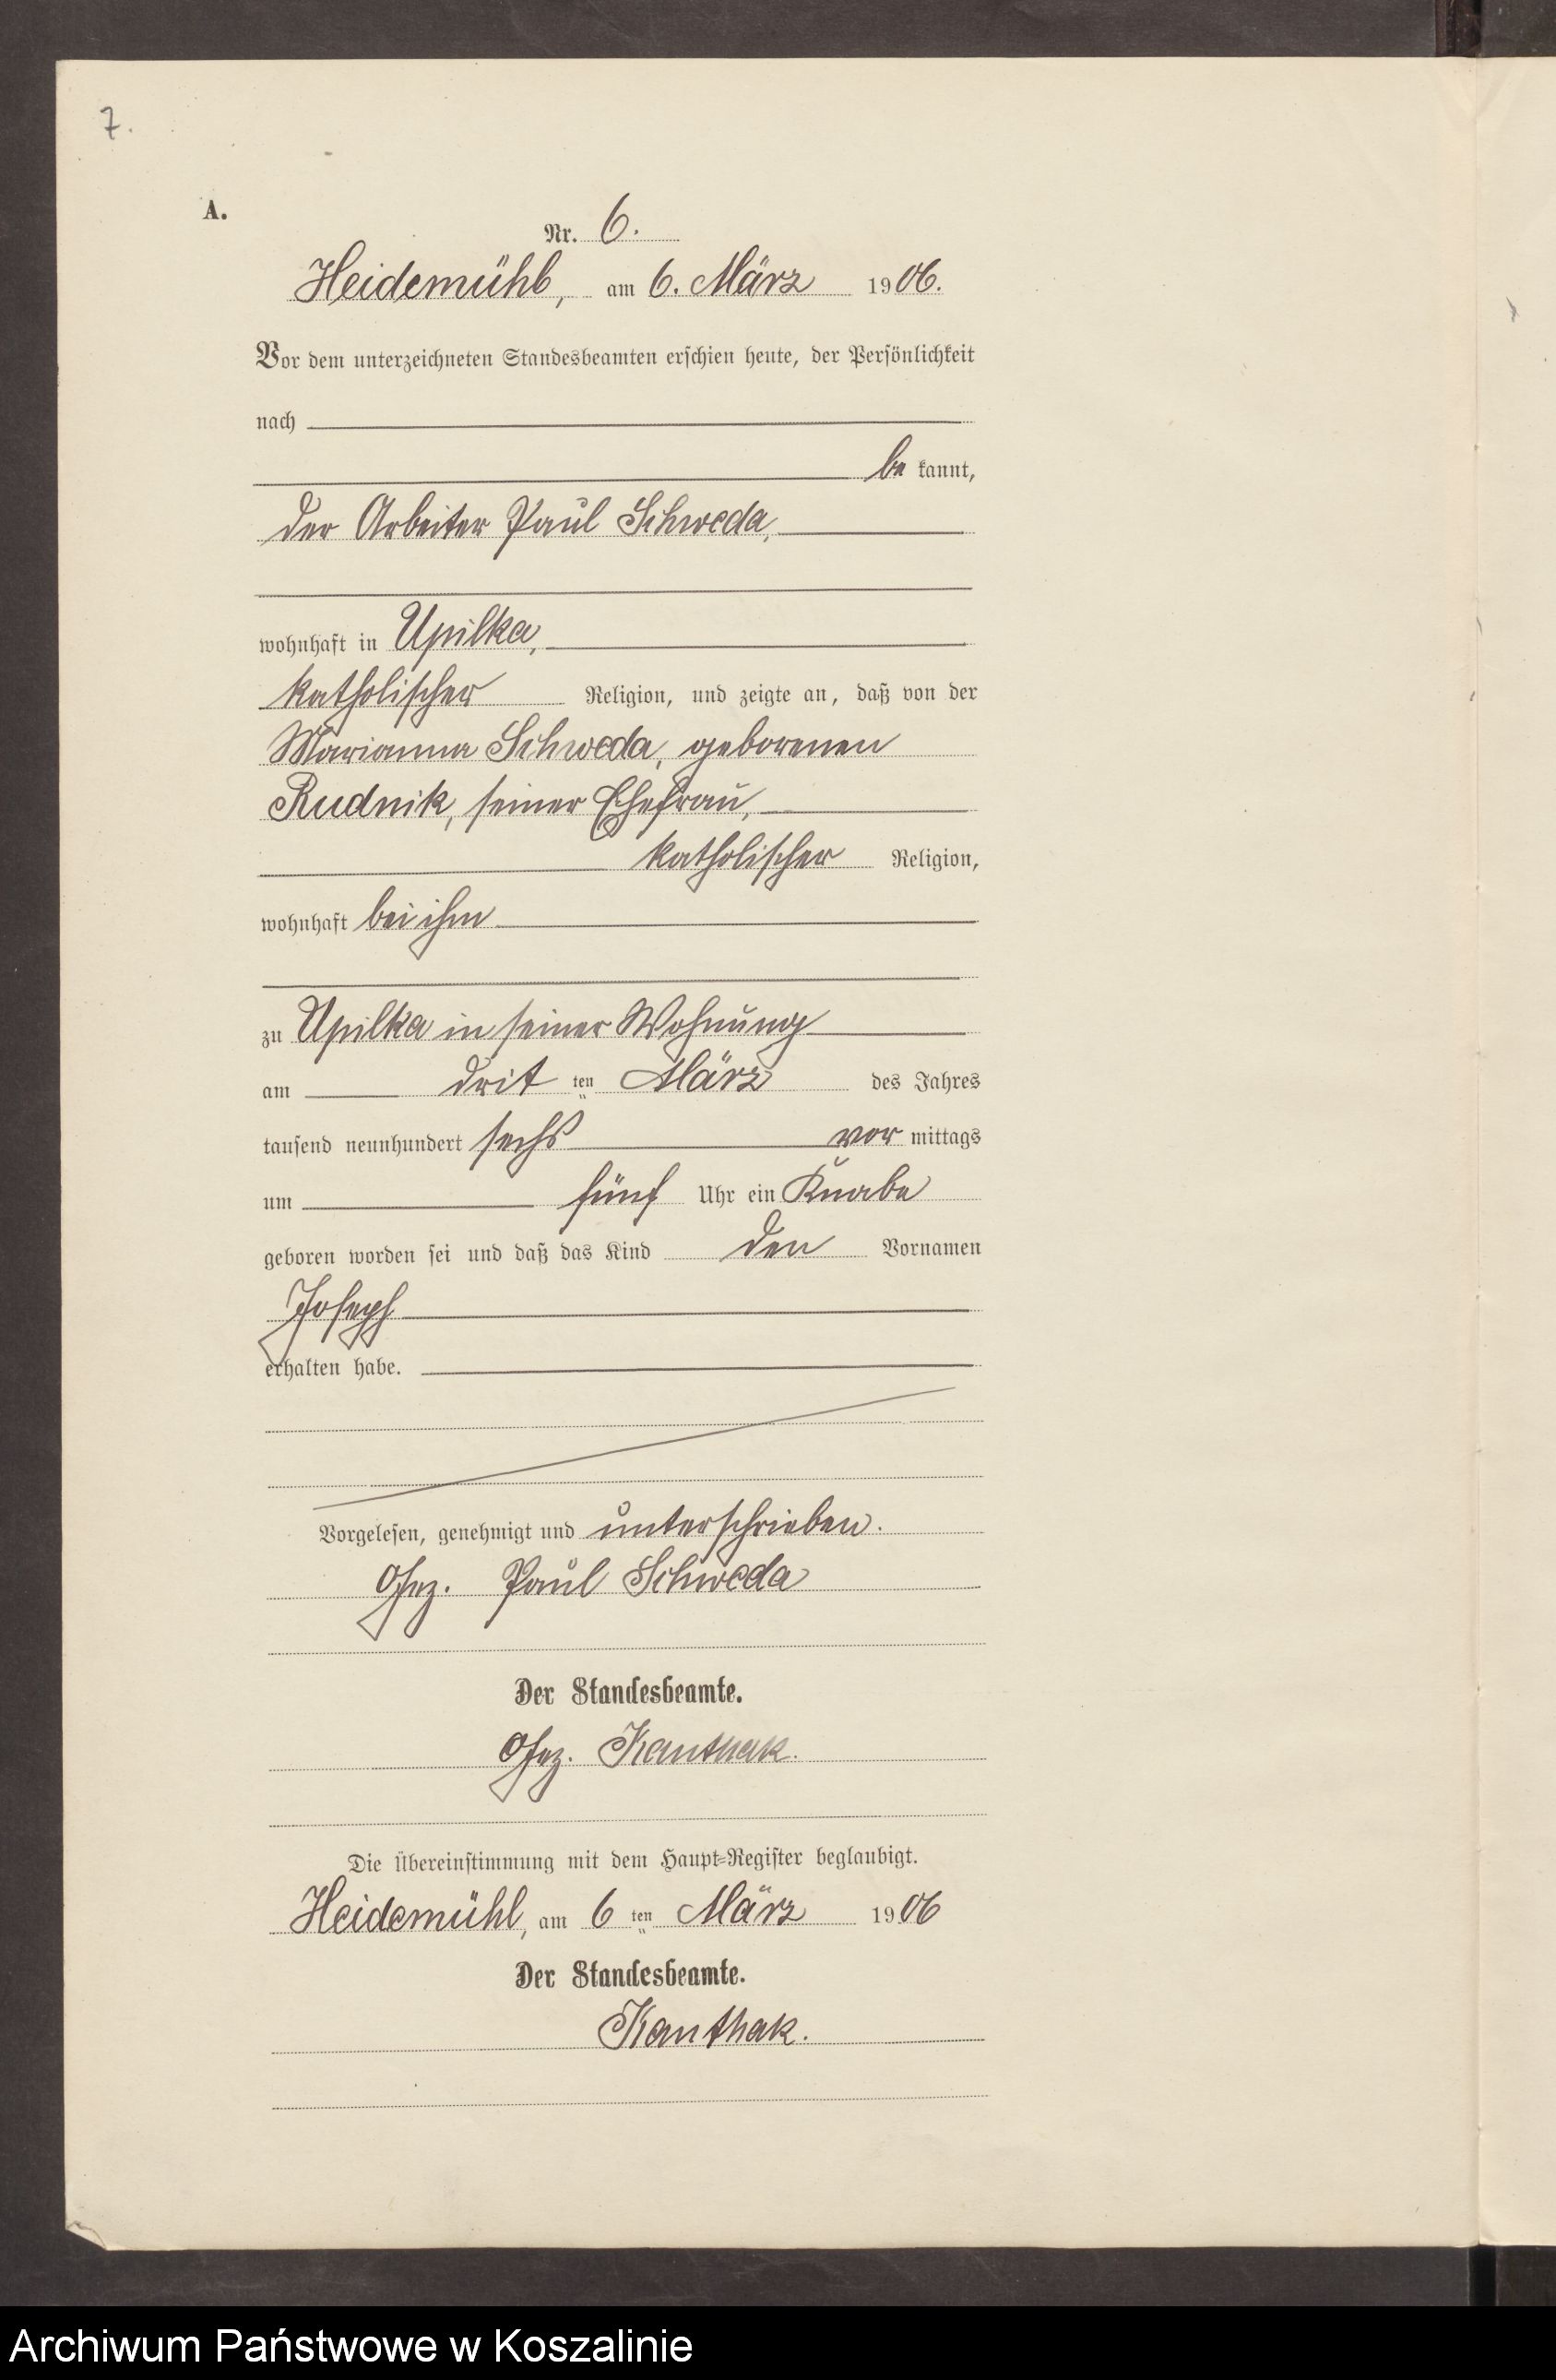 7.
A.
Nr. 6.
Heidemühl, am 6. März 1906.
Vor dem unterzeichneten Standesbeamten erschien heute, der Persönlichkeit
nach
be kannt,
der Arbeiter Paul Schweda,
wohnhaft in Upilka,
katholischer Religion, und zeigte an, daß von der
Marianna Schweda, geborenen
Rudnik, seiner Ehefrau,
katholischer Religion,
wohnhaft bei ihm
zu Upilka in seiner Wohnung
am drit ten März des Jahres
tausend neunhundert sechs vor mittags
um fünf Uhr ein Knabe
geboren worden sei und daß das Kind den Vornamen
Joseph
erhalten habe.
Vorgelesen, genehmigt und unterschrieben.
Gez. Paul Schweda
Der Standesbeamte.
Gez. Kanthak.
Die Übereinstimmung mit dem Haupt-Register beglaubigt.
Heidemühl, am 6 ten März 1906
Der Standesbeamte.
Kanthak.
Archiwum Państwowe w Koszalinie